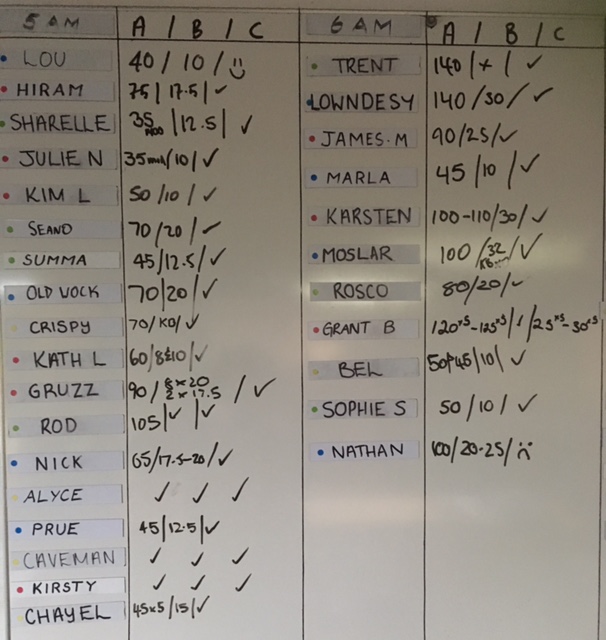 5 AM A / B / C
LOU 40 / 10 / ☺
HIRAM 75 / 17.5 / ✓
SHARELLE 35 / 12.5 / ✓
JULIE N 35 / 10 / ✓
KIM L 50 / 10 / ✓
SEANO 70 / 20 / ✓
SUMMA 45 / 12.5 / ✓
OLD VOCK 70 / 20 / ✓
CRISPY 70 / / ✓
KATH L 60 / 8&10 / ✓
GRUZZ 90 / 8 x 20 / ✓
2 x 17.5
ROD 105 / ✓ / ✓
NICK 65 / 17.5-20 / ✓
ALYCE ✓ ✓ ✓
PRUE 45 / 12.5 / ✓
CAVEMAN ✓ ✓ ✓
KIRSTY ✓ ✓ ✓
CHAYEL 45x5 / 15 / ✓
6 AM A / B / C
TRENT 140 / + / ✓
LOWNDESY 140 / 30 / ✓
JAMES.M 90 / 25 / ✓
MARLA 45 / 10 / ✓
KARSTEN 100-110 / 30 / ✓
MOSLAR 100 / 32 / ✓
ROSCO 80 / 20 / ✓
GRANT B 120 x5 - 125 x5 / / 25 x5 - 30 x5
BEL 45 / 10 / ✓
SOPHIE S 50 / 10 / ✓
NATHAN 100 / 20-25 / ☹